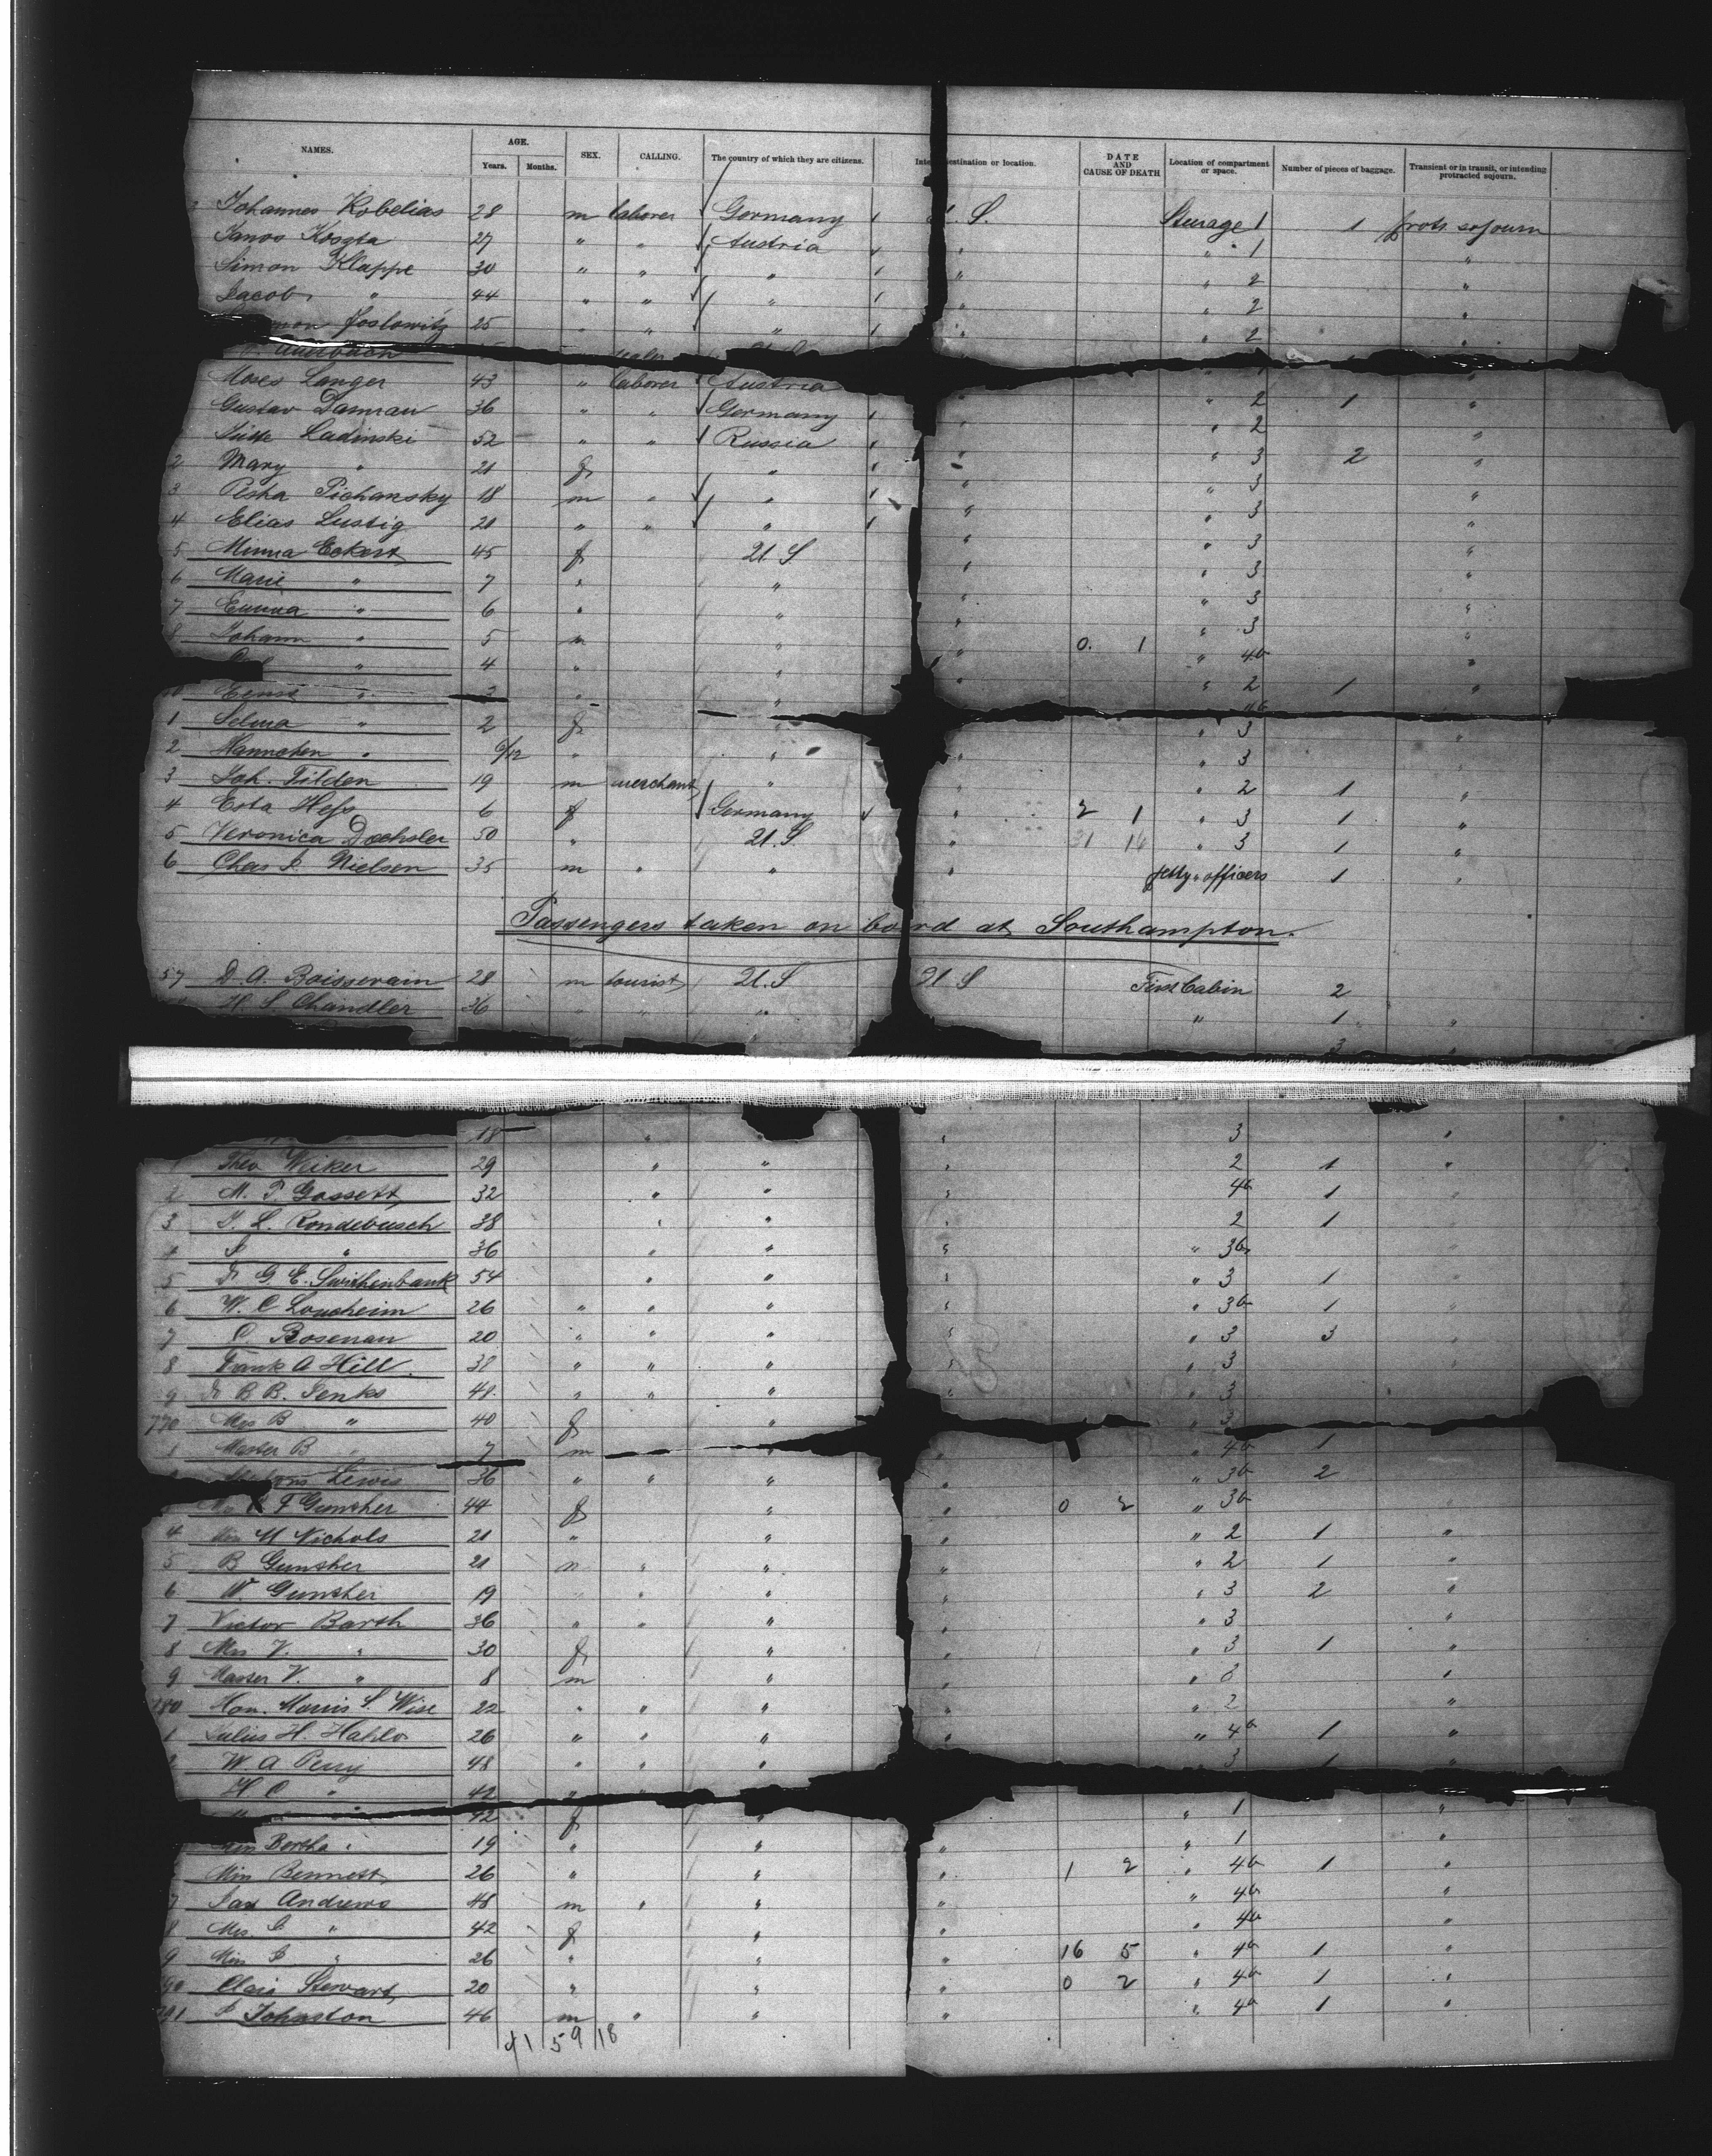 NAMES. AGE. Years. Months. SEX. CALLING. The country of which they are citizens. Inte destination or location. DATE AND CAUSE OF DEATH Location of compartment or space. Number of pieces of baggage. Transient or in transit, or intending protracted sojourn.
Johannes Kobelias 28 m laborer Germany S. Steurage 1 1 prots sojourn
Janos Koszta 27 " " Austria " " 1 "
Simon Klappe 30 " " " " " 2 "
Jacob " 44 " " " " " 2 "
Joslowitz 25 " " " " " 2 "
Auerbach
Moses Langer 43 " laborer Austria "
Gustav Damrau 36 " " Germany " " 2 1 "
Ladinski 52 " " Russia " " 2 "
2 Mary " 21 f " " " 3 2 "
3 Pesha Pichansky 18 m " " " " 3 "
4 Elias Lustig 21 " " " " " 3 "
5 Minna Eckert 45 f U.S " " 3 "
6 Marie " 7 " " " 3 "
7 Emma " 6 " " " " 3 "
8 Johann " 5 m " " " 3 "
" 4 " " " 0. 1 " 4b "
Ernst " " " " 2 1 "
1 Selma " 2 f " " 3 "
2 Hannchen " 6/12 " " " " 3
3 Joh. Tilden 19 m merchant " " " 2 1 "
4 Esta Hess 6 f Germany " 2 1 " 3 1 "
5 Veronica Dochsler 50 " U.S. " 31 16 " 3 1 "
6 Chas Nielsen 35 m " " " petty officers 1 "
Passengers taken on board at Southampton.
57 D. A. Boissevain 28 m tourist U.S U S First Cabin 2
H. S. Chandler 36 " " " " 1 "
3 "
18 " " 3 "
Theo Weiker 29 " " " 2 1 "
2 M. P. Gossett 32 " " " 4b 1 "
3 J. L. Roudebusch 38 " " " 2 1
4 " 36 " " " " 3b
5 Dr G. E. Swithenbank 54 " " " " 3 1
6 W. C Loucheim 26 " " " " " 3b 1
7 C. Bosenau 20 " " " " " 3 3
8 Frank A Hill. 38 " " " " " 3
9 Dr B B. Jenks 48 " " " " " 3
770 Mrs B " 40 f " " 3
1 Master B " 7 m " " " 4b 1
Lewis 36 " " " " " 3b 2
F Gunther 44 f " " 0 2 " 3b
4 Miss M Nichols 21 " " " " 2 1 "
5 B Gunther 21 m " " " " 2 1 "
6 W. Gunther 19 " " " " 3 2 "
7 Victor Barth 36 " " " " " 3 "
8 Mrs V. " 30 f " " " 3 1 "
9 Master V. " 8 m " " " 3 "
780 Hon. Morris S. Wise 22 " " " " " 2 "
1 Julius H. Hahlo 26 " " " " " 4b 1 "
2 W. A Perry 48 " " " " 3 1 "
H. C " 42 " "
" 42 f " " 1 "
Miss Bertha " 19 " " " " 1 "
Miss Bennett 26 " " " 1 2 " 4b 1 "
7 Jas Andrews 48 m " " " " 4b "
8 Mrs. " 42 f " " 4b "
9 Miss " 26 " " " 16 5 " 4b 1 "
90 Stewart 20 " " " 0 2 " 4b 1 "
791 Johnston 46 m " " " " 4b 1 "
41 59 18